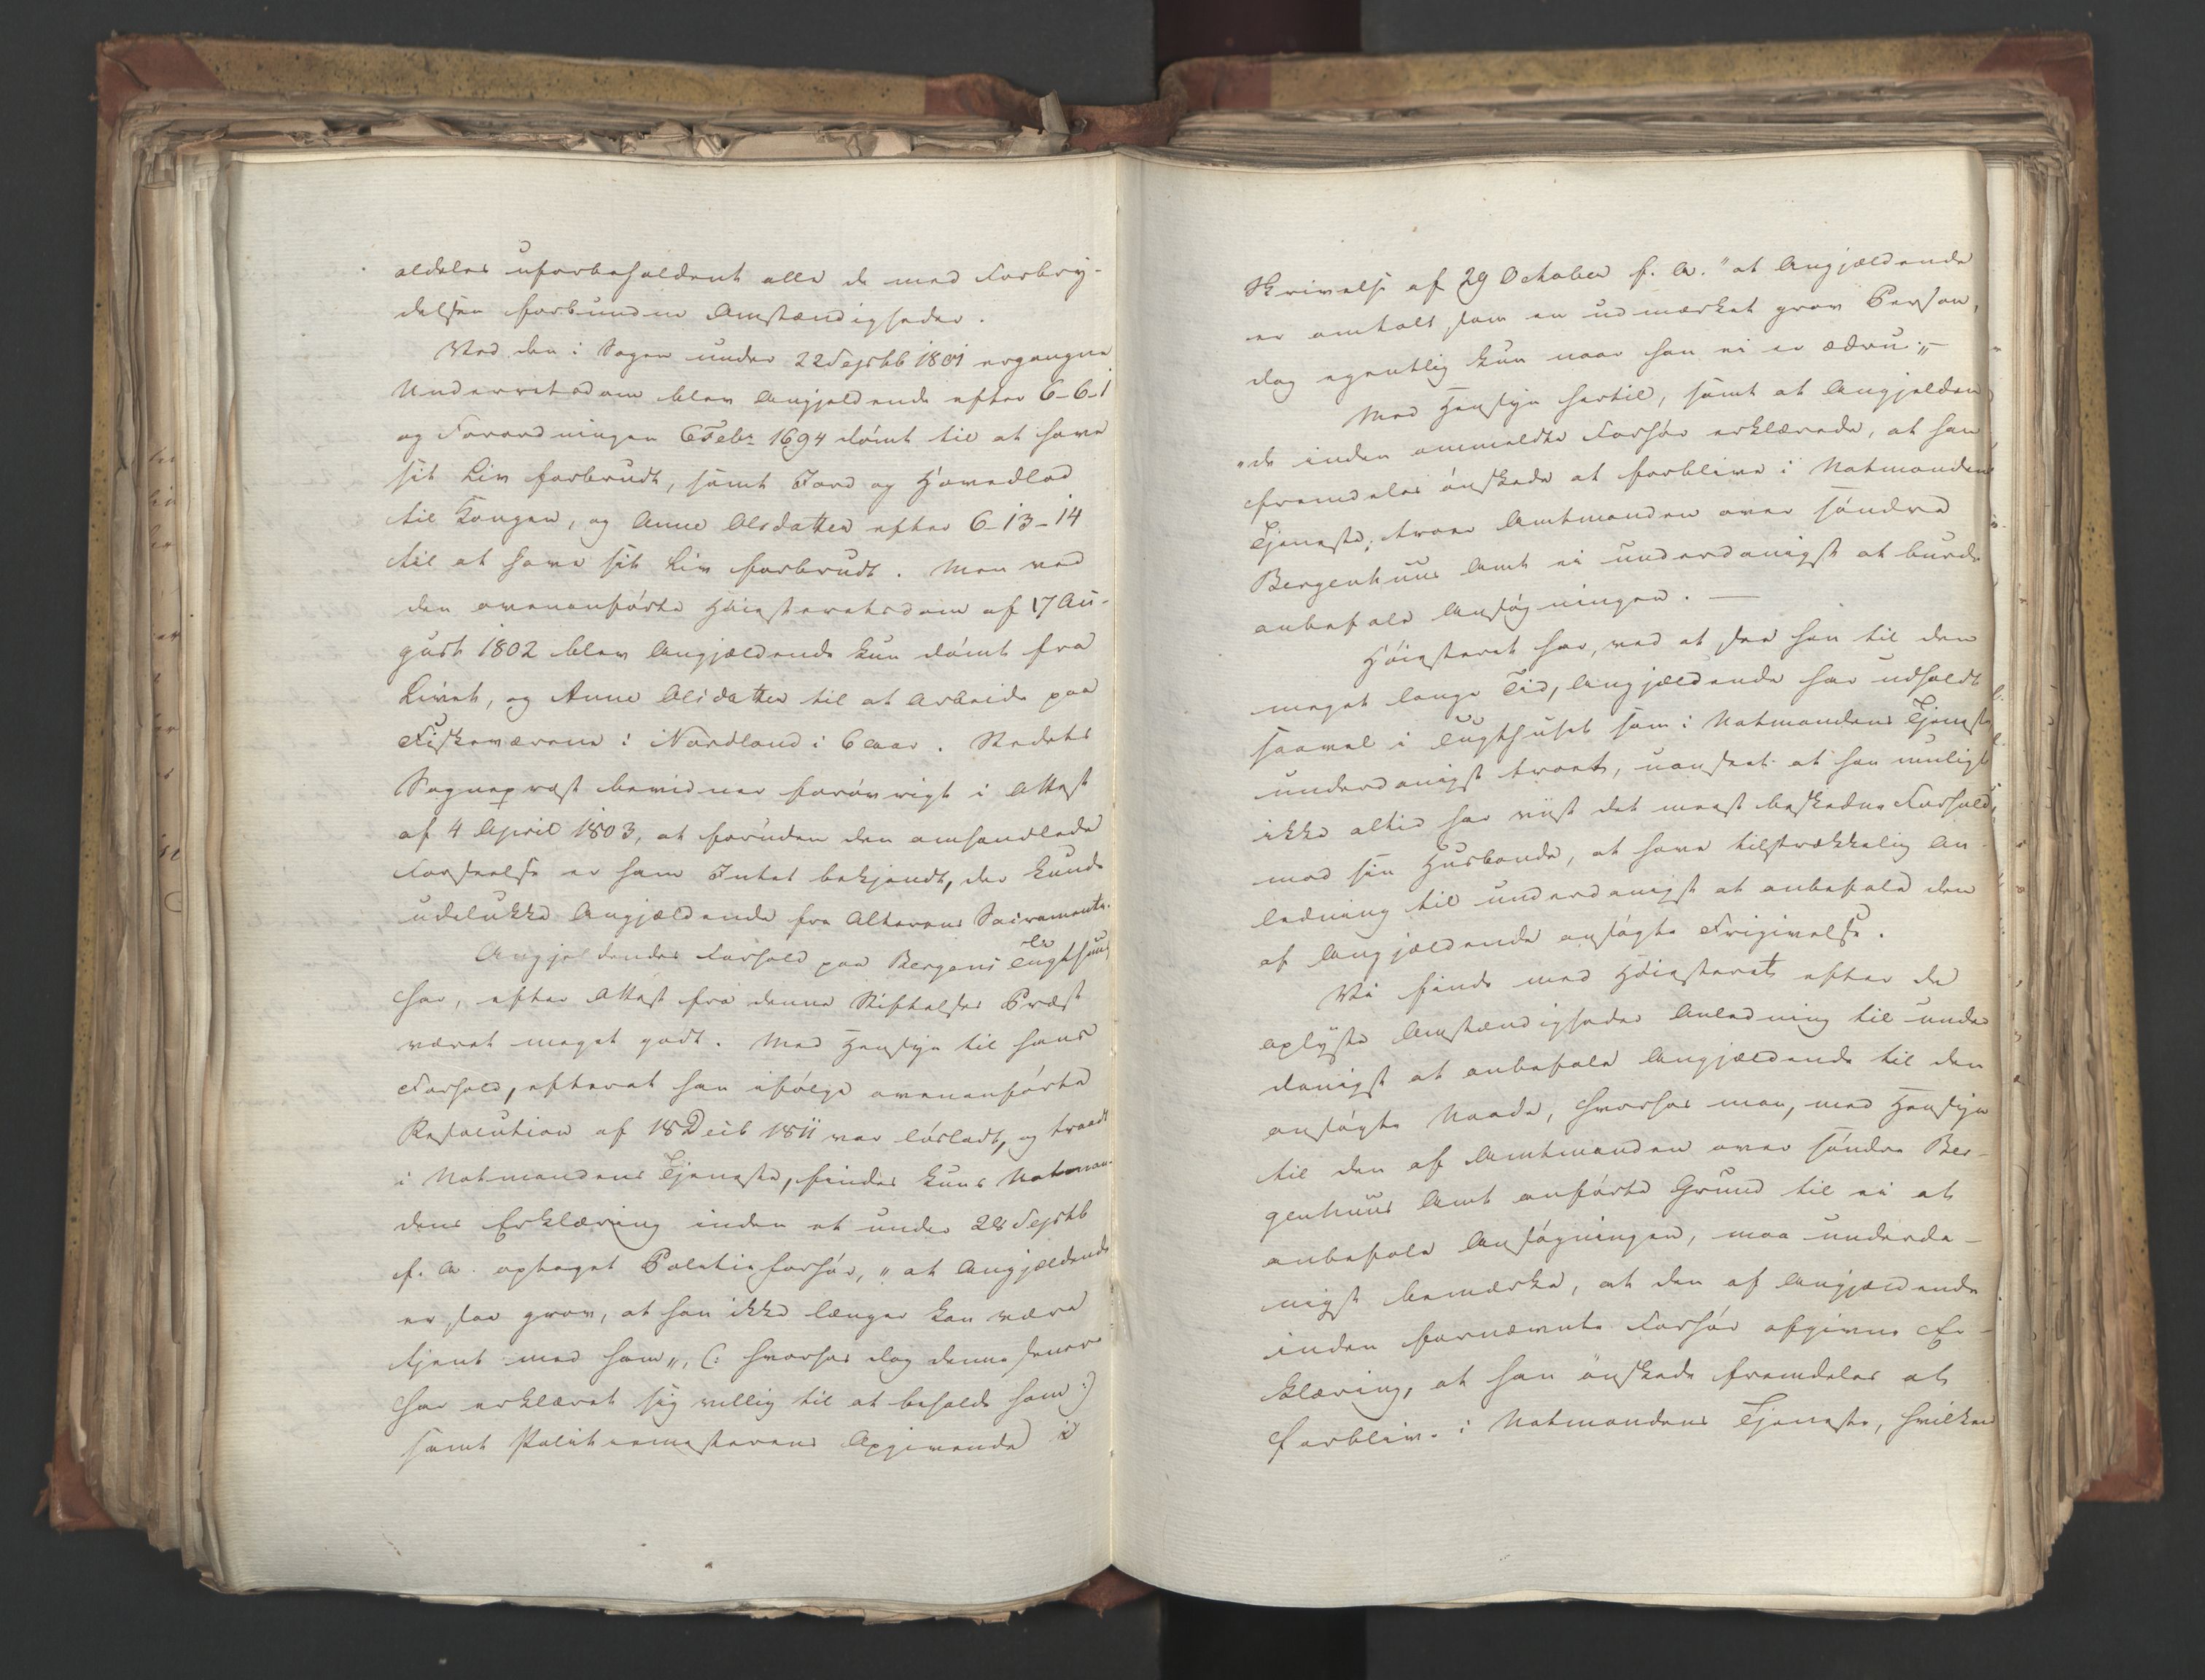 aldeles uforbeholdent alle de med Forbry-
delsen forbundne Omstændigheder.
Ved den i Sagen under 22 Septbr 1801 ergangne
Underretsdom blev Angjeldende efter 6-6-1
og Forordningen 6 Febr 1694 dømt til at have
sit Liv forbrudt, samt Jord og Hovedlod
til Kongen, og Anne Olsdatter efter 6-13-14
til at have sit Liv forbrudt. Men ved
den ovenanførte Høiesteretsdom af 17 Au-
gust 1802 blev Angjældende kun dømt fra
Livet, og Anne Olsdatter til at arbeide paa
Fiskeværene i Nordland i 6 Aar. Stedets
Sognepræst bevidner forøvrigt i Attest
af 4 April 1803, at foruden den omhandlede
Forseelse er ham Intet bekjendt, der kunde
udelukke Angjældende fra Alterens Sacramente.
Angjeldendes Forhold paa Bergens Tugthuus
har, efter Attest fra denne Stiftelses Præst
været meget godt. Med Hensyn til hans
Forhold, efterat han ifølge ovenanførte
Resolution af 18 Decb 1811 var løsladt, og traadt
i Natmandens Tjeneste, findes kuns Natman-
dens Erklæring inden et under 28 Septb
f. A. optaget Politieforhør, "at Angjældende
er saa grov, at han ikke længer kan være
tjent med ham", (: hvorhos dog denne senere
har erklæret sig villig til at beholde ham :)
samt Politiemesterens Opgivende i
Skrivelse af 29 October f. A. "at Angjældende
er omtalt som en udmærket grov Person,
dog egentlig kun naar han ei er ædru;" -
Med Hensyn hertil, samt at Angjelden
"de inden ommeldte Forhør erklærede, at han
fremdeles ønskede at forblive i Natmandens
Tjeneste; troer Amtmanden over søndre
Bergenhuus Amt ei underdanigst at burde
anbefale Ansøgningen. —
Høiesteret har, ved at see hen til den
meget lange Tid, Angjældende har udholdt
saavel i Tugthuset som i Natmandens Tjeneste
underdanigst troet, uanseet at han muligt
ikke altid har viist det meest beskedne Forhold
mod sin Husbonde, at have tilstrækkelig An-
ledning til underdanigst at anbefale den
af Angjældende ansøgte Frigivelse.
Vi finde med Høiesteret efter de
oplyste Omstændigheder Anledning til under
danigst at anbefale Angjældende til den
ansøgte Naade, hvorhos man, med Hensyn
til den af Amtmanden over søndre Ber-
genhuus Amt anførte Grund til ei at
anbefale Ansøgningen, maa underda-
nigst bemærke, at den af Angjældende
inden fornævnte Forhør afgivne Er-
klæring, at han ønskede fremdeles at
forblive i Natmandens Tjeneste, hvilken